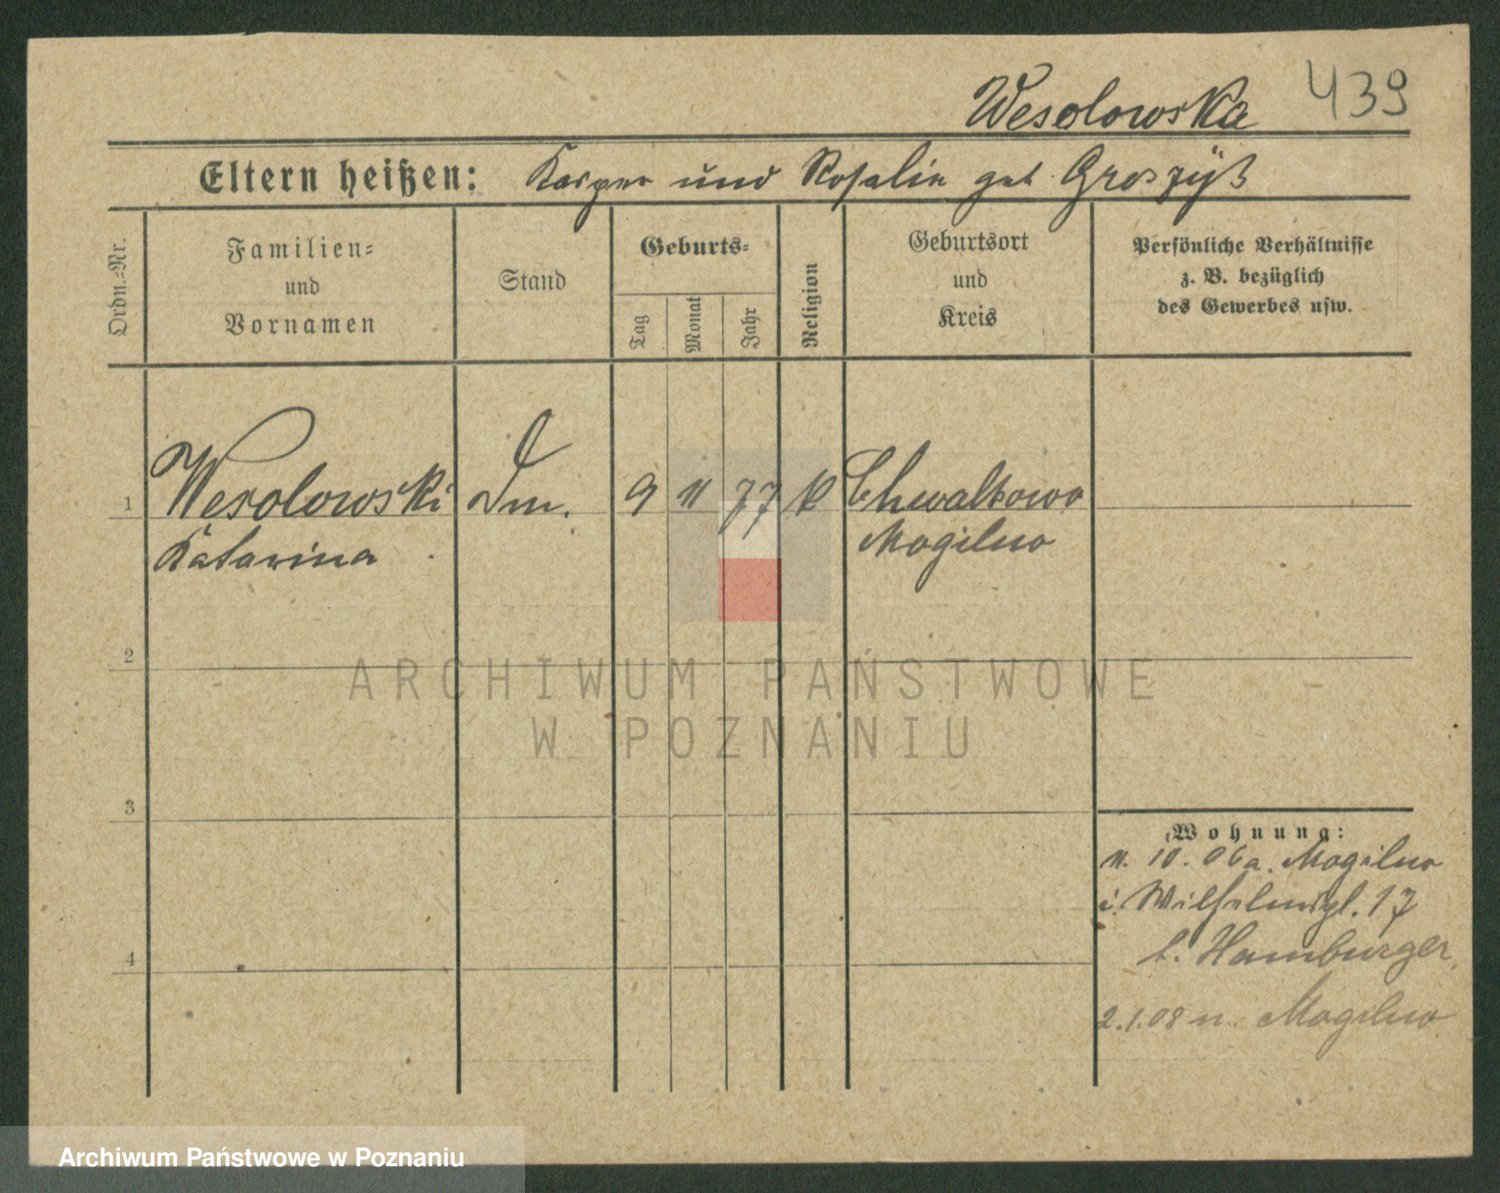 Wesolowska 439
Eltern heißen: Kasper und Rosalie geb Groszyß
Ordn.-Nr.
Familien-
und
Vornamen
Stand
Geburts-
Tag
Monat
Jahr
Religion
Geburtsort
und
Kreis
Persönliche Verhältnisse
z. B. bezüglich
des Gewerbes usw.
1 Wesolowski Dm. 9 11 77 k Chwalkowo
Katarina Mogilno
2
3
4
Wohnung:
11. 10. 06 a. Mogilno
i. Wilhelmspl. 17
b. Hamburger
2.1.08 n. Mogilno
ARCHIWUM PAŃSTWOWE
W POZNANIU
Archiwum Państwowe w Poznaniu